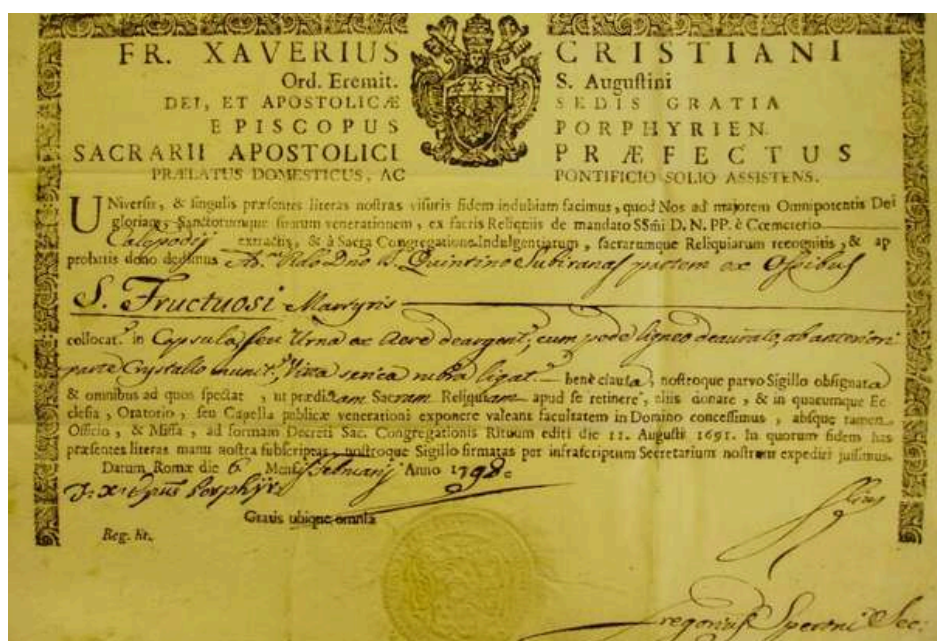 FR. XAVERIUS CRISTIANI
Ord. Eremit. S. Auguſtini
DEI, ET APOSTOLICÆ SEDIS GRATIA
EPISCOPUS PORPHYRIEN.
SACRARII APOSTOLICI PRÆFECTUS
PRÆLATUS DOMESTICUS, AC PONTIFICIO SOLIO ASSISTENS.
UNiverſis, & ſingulis præſentes literas noſtras viſuris fidem indubiam facimus, quod Nos ad majorem Omnipotentis Dei
gloriam, Sanctorumque ſuorum venerationem, ex ſacris Reliquiis de mandato SSmi D. N. PP. è Cœmeterio
Calepodij extractis, & à Sacra Congregatione Indulgentiarum, ſacrarumque Reliquiarum recognitis, & ap
probatis dono dedimus Quintino Subiranas partem ex Ossibus
S. Fructuosi Martyris
collocat. in Capsula, seu Urna ex Aere deargent. cum pede ligneo deaurato, ab anteriori
parte Crystallo munit. Vitta serica rubra ligat. benè clauſa, noſtroque parvo Sigillo obſignata
& omnibus ad quos ſpectat, ut prædictam Sacram Reliquiam apud ſe retinere, aliis donare, & in quacumque Ec
cleſia, Oratorio, ſeu Capella publicæ venerationi exponere valeant facultatem in Domino conceſſimus, absque tamen
Officio, & Miſſa, ad formam Decreti Sac. Congregationis Rituum editi die 11. Auguſti 1691. In quorum fidem has
præſentes literas manu noſtra ſubſcriptas, noſtroque Sigillo firmatas per infraſcriptum Secretarium noſtrum expediri juſſimus.
Datum Romæ die 6. Menſ. Anno 1798.
Porphyr.
Gratis ubique omnia
Reg. &c.
Gregorius Speroni Sec.